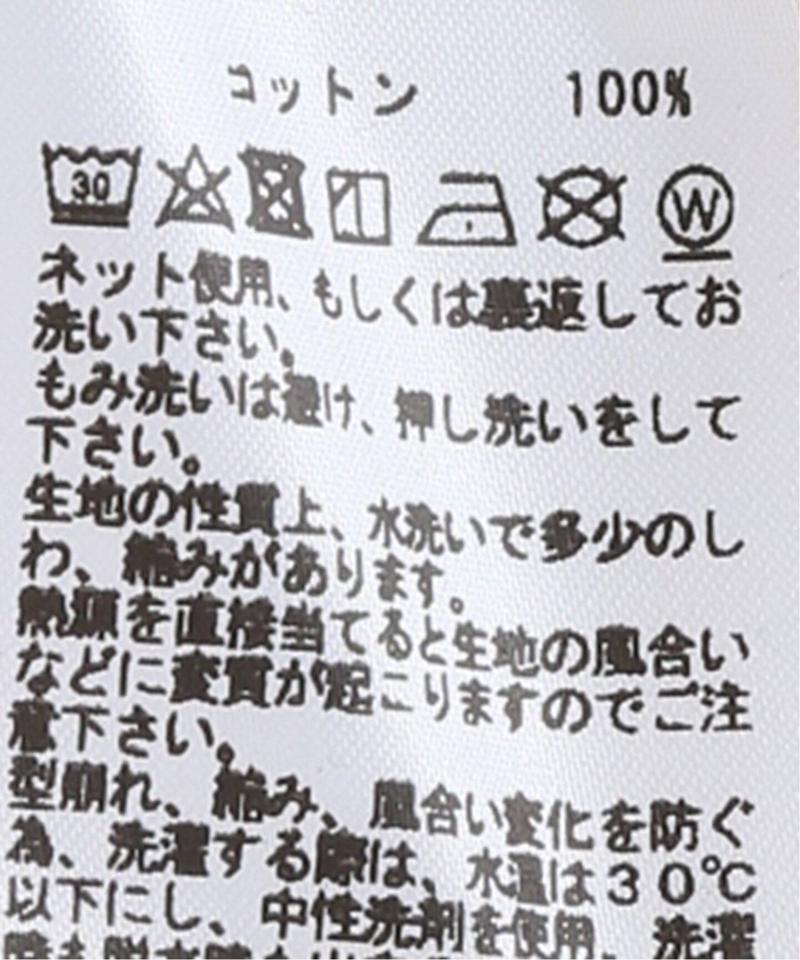 コットン 100%
30 W
ネット使用、もしくは裏返してお
洗い下さい。
もみ洗いは避け、押し洗いをして
下さい。
生地の性質上、水洗いで多少のし
わ、縮みがあります。
熱源を直接当てると生地の風合い
などに変質が起こりますのでご注
意下さい。
型崩れ、縮み、風合い変化を防ぐ
為、洗濯する際は、水温は30℃
以下にし、中性洗剤を使用、洗濯